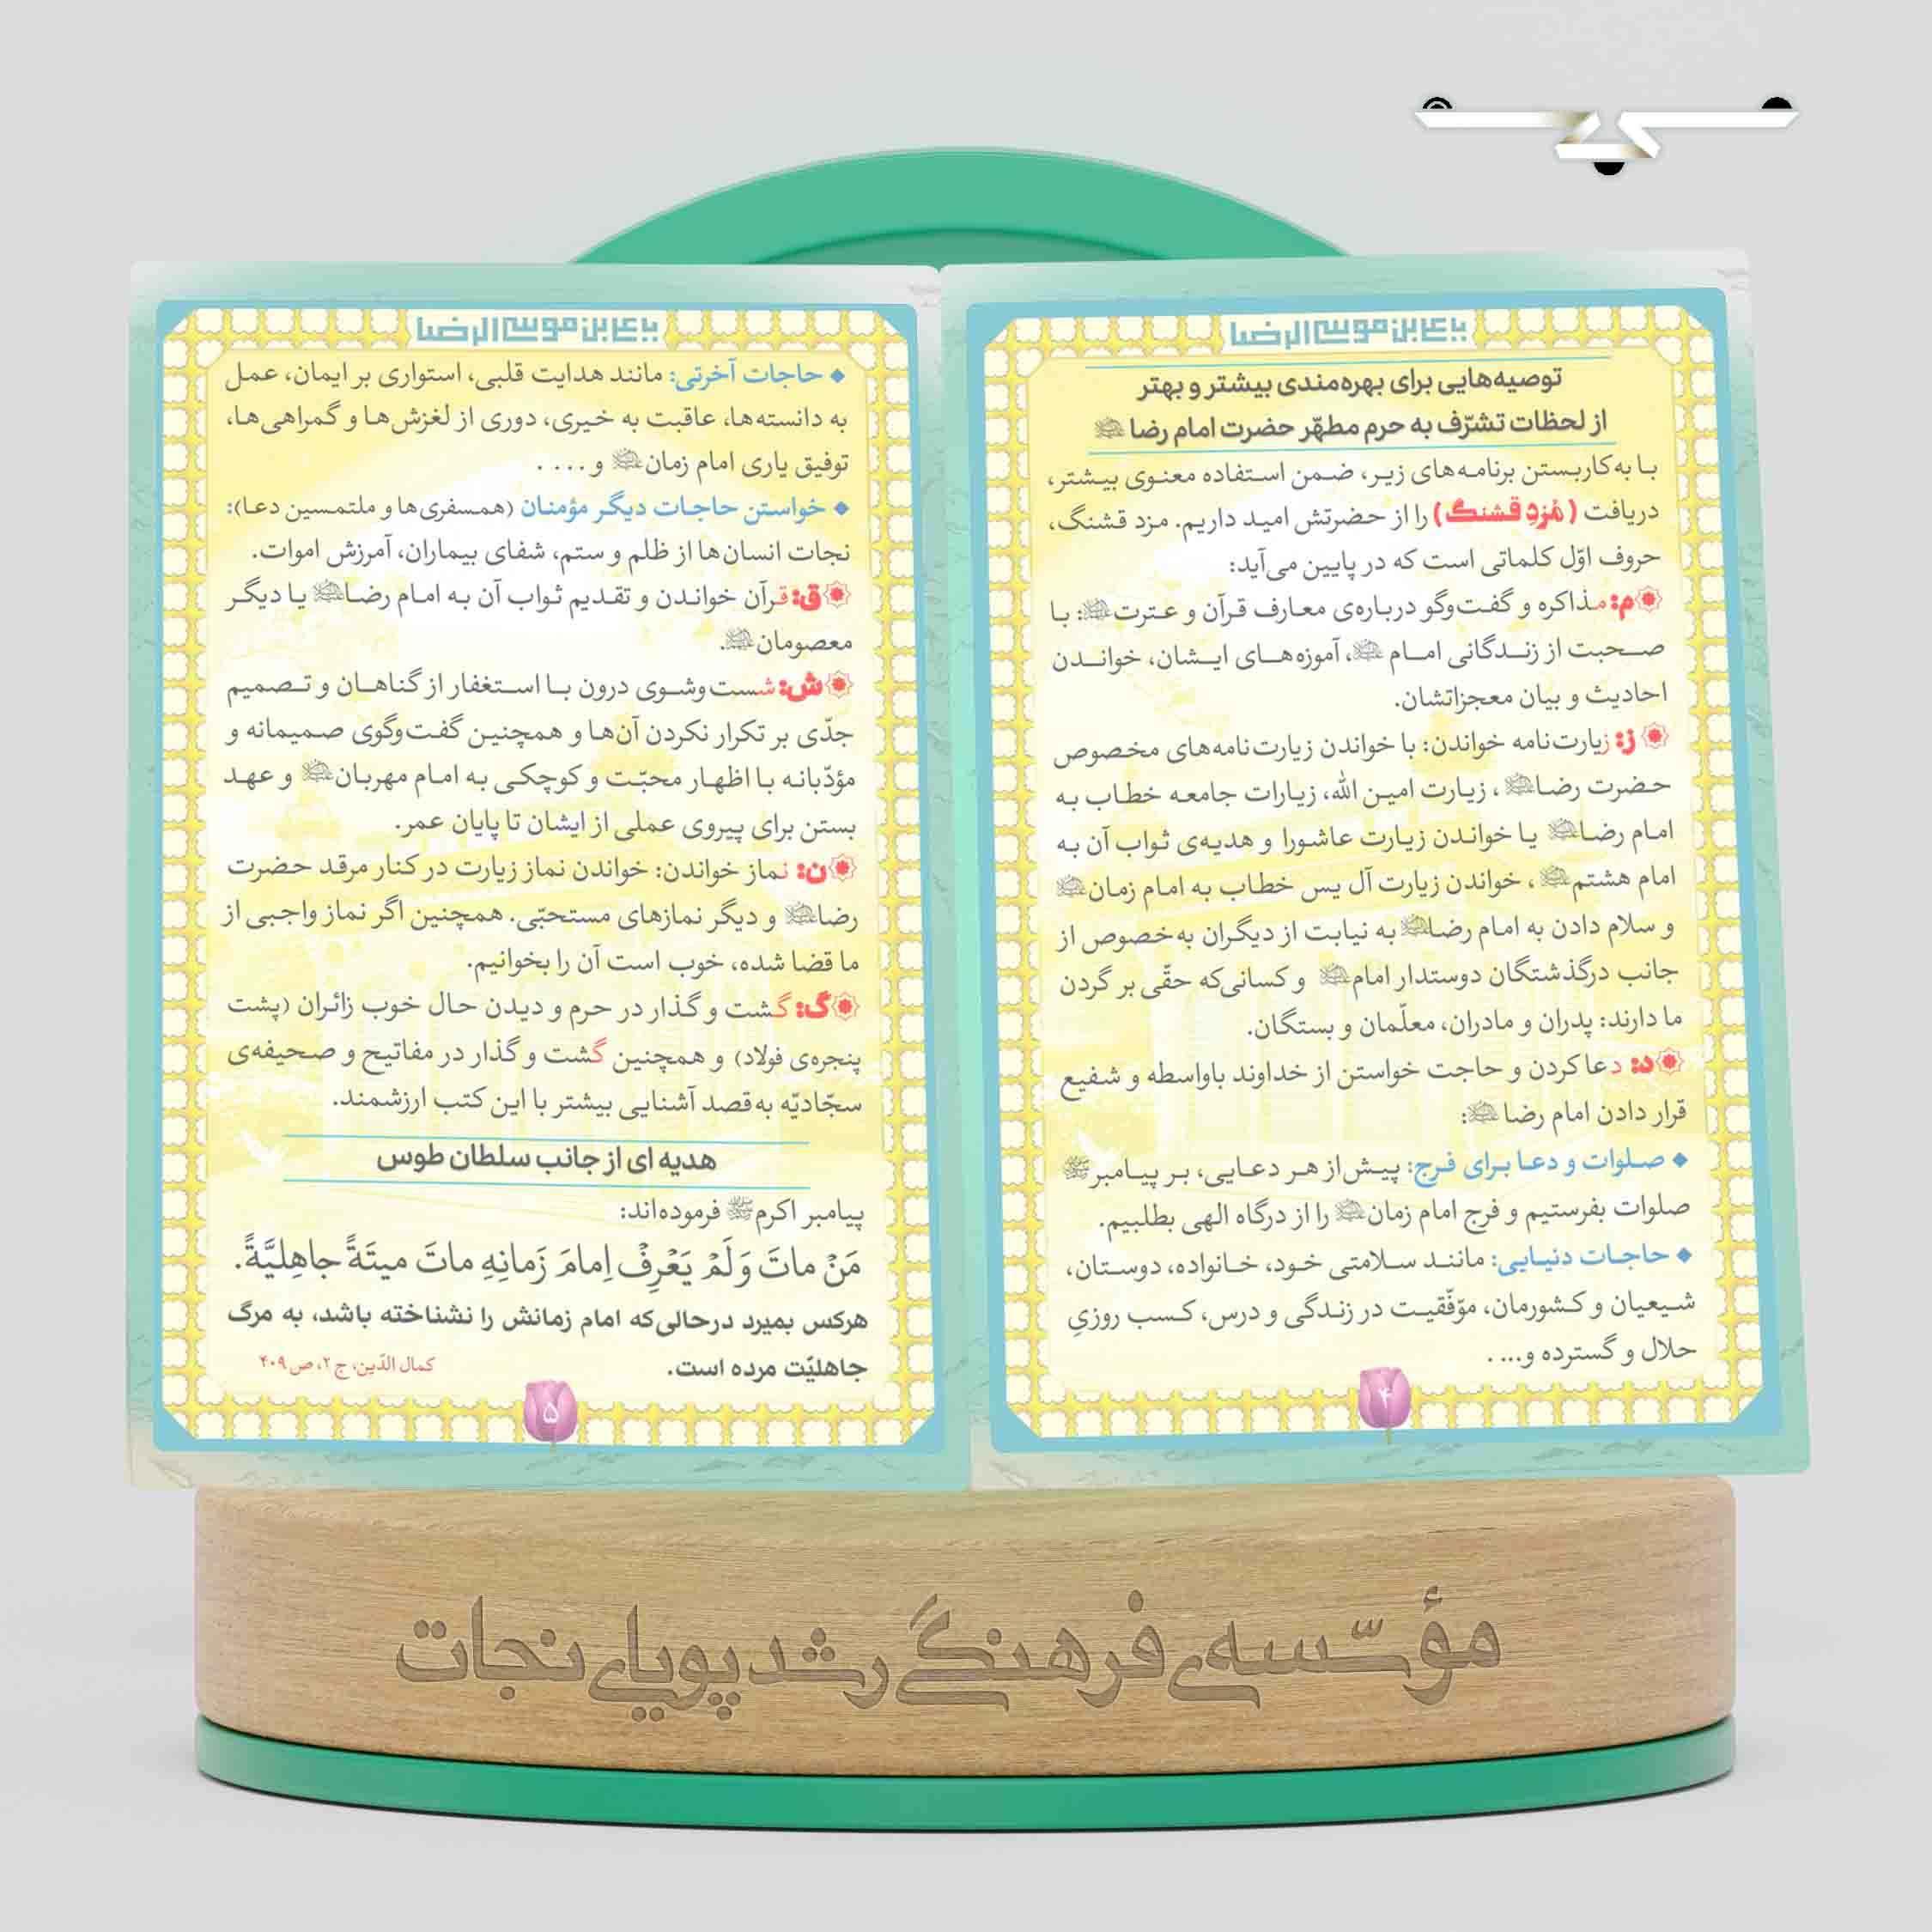 یا علی بن موسی الرضا
توصیه‌هایی برای بهره‌مندی بیشتر و بهتر
از لحظات تشرّف به حرم مطهّر حضرت امام رضا
با به‌کار بستن برنامه‌های زیر، ضمن استفاده معنوی بیشتر،
دریافت (مُزدِ قشنگ) را از حضرتش امید داریم. مزد قشنگ،
حروف اوّل کلماتی است که در پایین می‌آید:
م: مذاکره و گفت‌وگو درباره‌ی معارف قرآن و عترت: با
صحبت از زندگانی امام، آموزه‌های ایشان، خواندن
احادیث و بیان معجزاتشان.
ز: زیارت‌نامه خواندن: با خواندن زیارت‌نامه‌های مخصوص
حضرت رضا، زیارت امین الله، زیارات جامعه خطاب به
امام رضا یا خواندن زیارت عاشورا و هدیه‌ی ثواب آن به
امام هشتم، خواندن زیارت آل یس خطاب به امام زمان
و سلام دادن به امام رضا به نیابت از دیگران به‌خصوص از
جانب درگذشتگان دوستدار امام و کسانی‌که حقّی بر گردن
ما دارند: پدران و مادران، معلّمان و بستگان.
د: دعا کردن و حاجت خواستن از خداوند باواسطه و شفیع
قرار دادن امام رضا:
◆ صلوات و دعا برای فرج: پیش‌از هر دعایی، بر پیامبر ﷺ
صلوات بفرستیم و فرج امام زمان را از درگاه الهی بطلبیم.
◆ حاجات دنیایی: مانند سلامتی خود، خانواده، دوستان،
شیعیان و کشورمان، موّفّقیت در زندگی و درس، کسب روزیِ
حلال و گسترده و... .
۴
یا علی بن موسی الرضا
◆ حاجات آخرتی: مانند هدایت قلبی، استواری بر ایمان، عمل
به دانسته‌ها، عاقبت به خیری، دوری از لغزش‌ها و گمراهی‌ها،
توفیق یاری امام زمان و... .
◆ خواستن حاجات دیگر مؤمنان (همسفری‌ها و ملتمسین دعا):
نجات انسان‌ها از ظلم و ستم، شفای بیماران، آمرزش اموات.
ق: قرآن خواندن و تقدیم ثواب آن به امام رضا یا دیگر
معصومان.
ش: شست‌وشوی درون با استغفار از گناهان و تصمیم
جدّی بر تکرار نکردن آن‌ها و همچنین گفت‌وگوی صمیمانه و
مؤدّبانه با اظهار محبّت و کوچکی به امام مهربان و عهد
بستن برای پیروی عملی از ایشان تا پایان عمر.
ن: نماز خواندن: خواندن نماز زیارت در کنار مرقد حضرت
رضا و دیگر نمازهای مستحبّی. همچنین اگر نماز واجبی از
ما قضا شده، خوب است آن را بخوانیم.
گ: گشت و گذار در حرم و دیدن حال خوب زائران (پشت
پنجره‌ی فولاد) و همچنین گشت و گذار در مفاتیح و صحیفه‌ی
سجّادیّه به‌قصد آشنایی بیشتر با این کتب ارزشمند.
هدیه ای از جانب سلطان طوس
پیامبر اکرم ﷺ فرموده‌اند:
مَنْ ماتَ وَلَمْ یَعْرِفْ اِمامَ زَمانِهِ ماتَ میتَةً جاهِلیَّةً.
هرکس بمیرد درحالی‌که امام زمانش را نشناخته باشد، به مرگ
جاهلیّت مرده است.
کمال الدّین، ج ۲، ص ۴۰۹
۵
مؤسّسه‌ی فرهنگی رشد پویای نجات